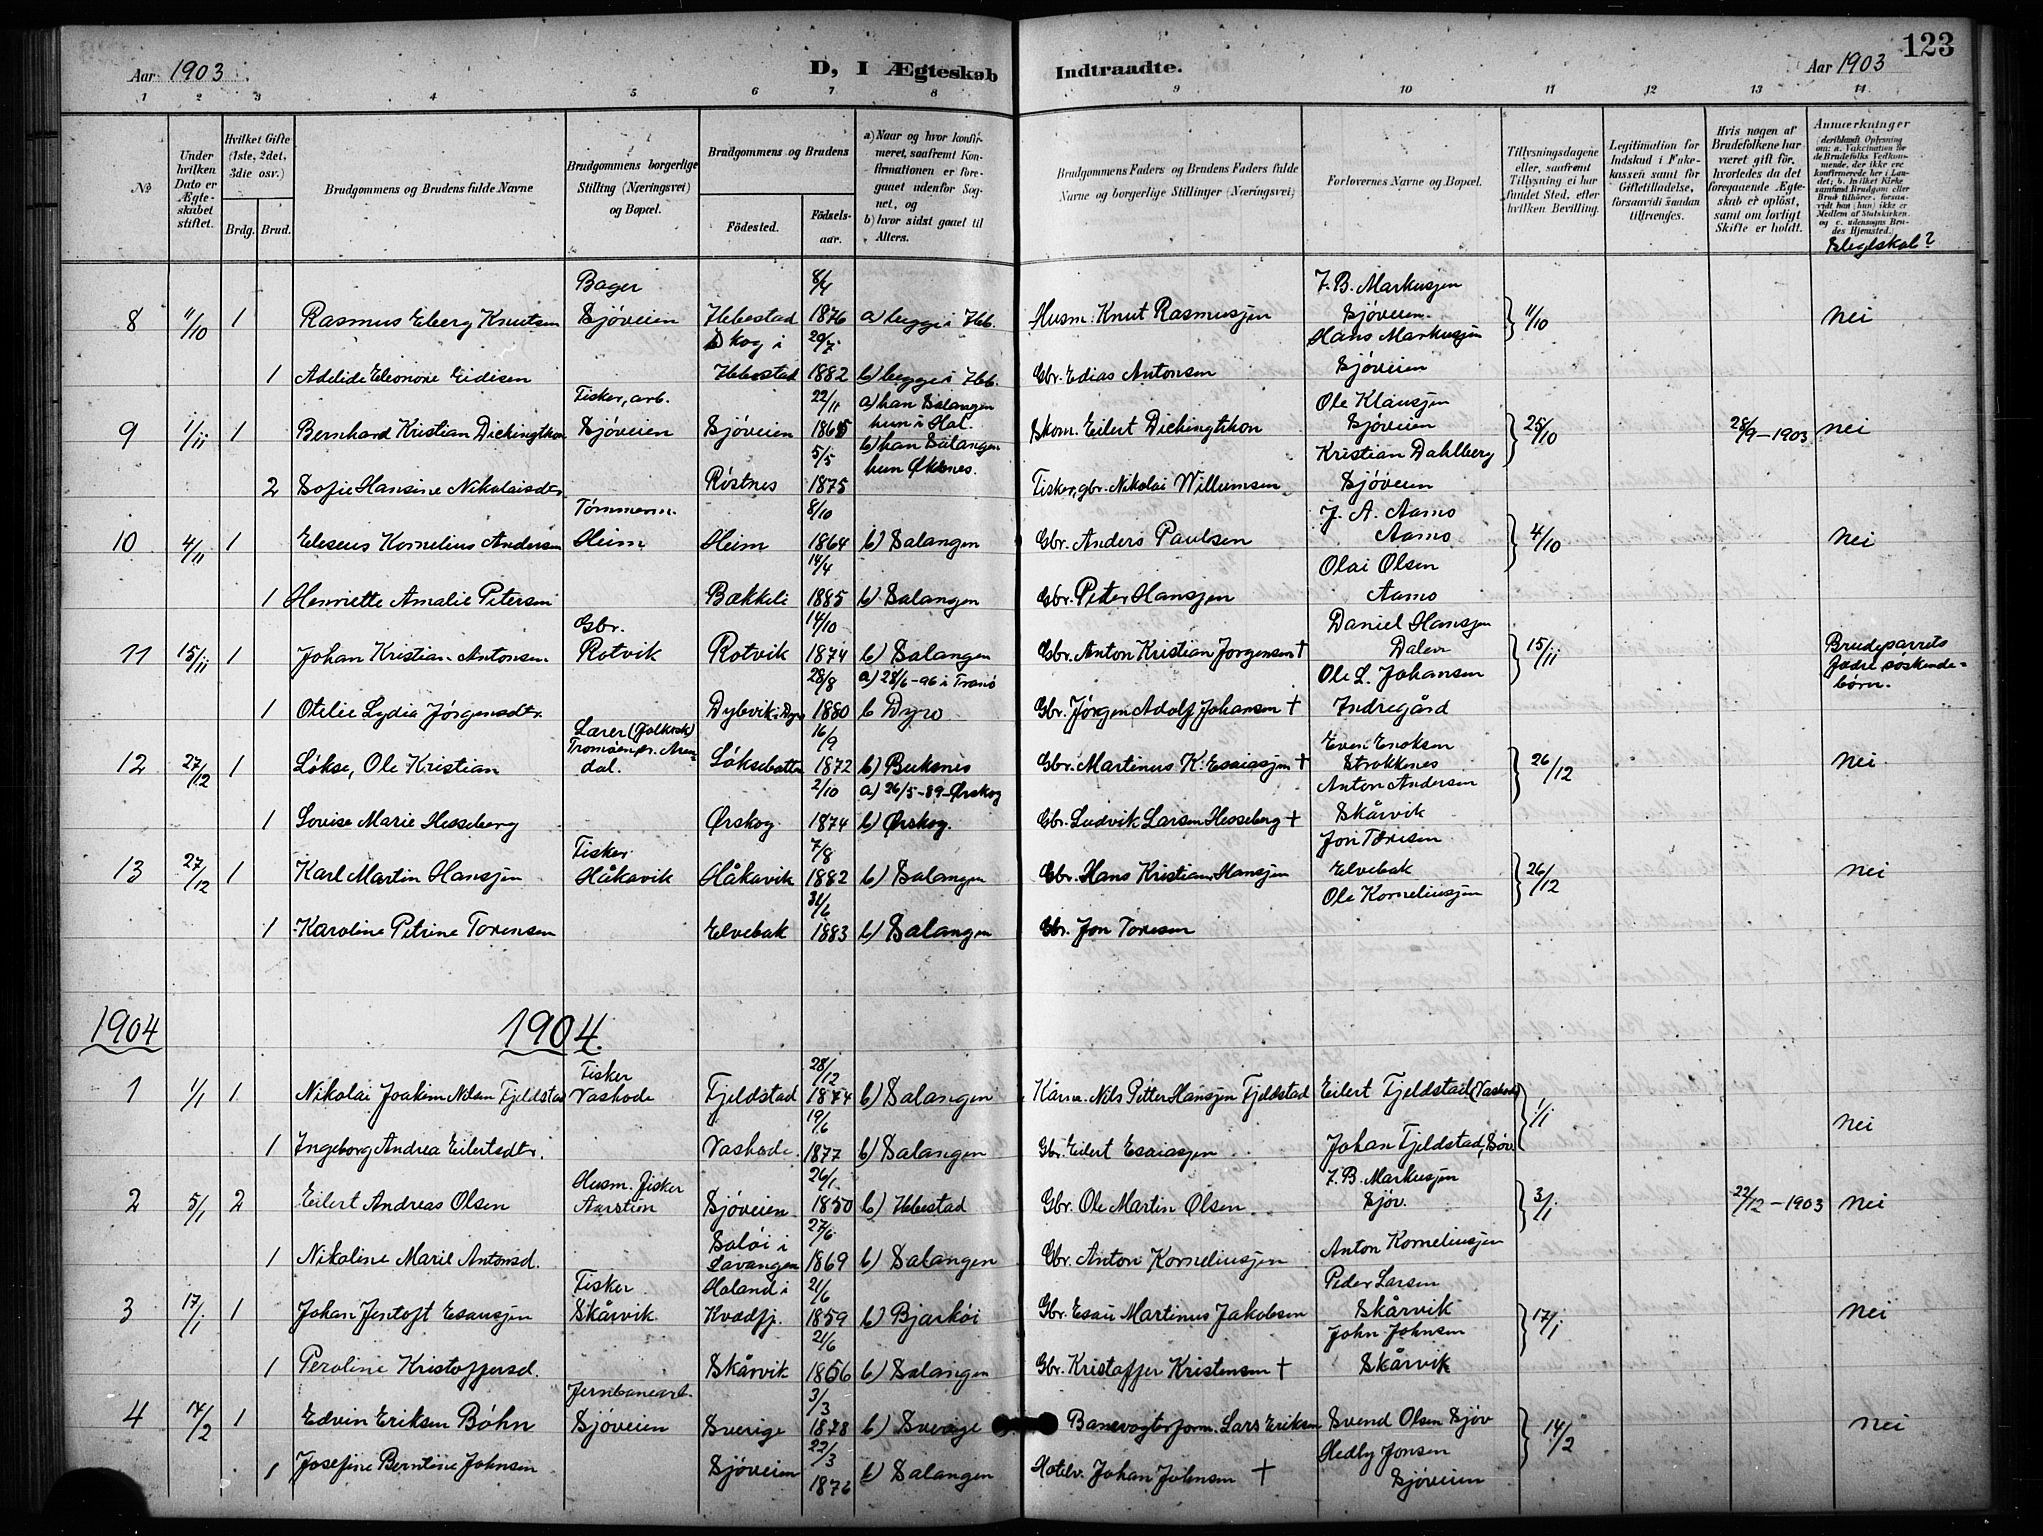 123
Aar 1903
D, I Ægteskab Indtraadte.
Aar 1903
1 2 3 4 5 6 7 8 9 10 11 12 13 14
No
Under hvilken Dato er Ægteskabet stiftet.
Hvilket Gifte (1ste, 2det, 3die osv.)
Brdg. Brud.
Brudgommens og Brudens fulde Navne
Brudgommens borgerlige Stilling (Næringsvei) og Bopæl.
Brudgommens og Brudens
Fødested.
Fødselsaar.
a) Naar og hvor konfirmeret, saafremt Konfirmationen er foregaaet udenfor Sognet, og
b) hvor sidst gaaet til Alters.
Brudgommens Faders og Brudens Faders fulde Navne og borgerlige Stillinger (Næringsvei)
Forlovernes Navne og Bopæl.
Tillysningsdagene eller, saafremt Tillysning ei har fundet Sted, efter hvilken Bevilling.
Legitimation for Indskud i Enkekassen samt for Giftetilladelse, forsaavidt saadan tiltrænges.
Hvis nogen af Brudefolkene har været gift før, hvorledes da det foregaaende Ægteskab er opløst, samt om lovligt Skifte er holdt.
Anmærkninger
Slegtskab?
8 11/10 1 Rasmus Eberg Knutsen Bager Sjøveien Ibbestad 8/4 1876 a) begge i Ibb. Husm. Knut Rasmusjen J. B. Markusjen Sjøveien. 11/10 nei
1 Adelide Eleonore Eidisen Skog i Ibbestad 29/7 1882 b) begge i Ibb. Gbr. Edias Antonsen Hans Markusjen Sjøveien
9 1/11 1 Bernhard Kristian Dickingtkon Fisker, arb. Sjøveien Sjøveien 22/11 1865 a) han Salangen hun i Hal. Skom. Eilert Dickingtkon Ole Klausjen Sjøveien 25/10 28/9-1903 nei
2 Sofie Hansine Nikolaisdtr. Røstnes 5/5 1875 b) han Salangen hun Øksnes. Fisker, gbr. Nikolai Willumsen Kristian Dahlberg Sjøveien
10 4/11 1 Eleseus Kornelius Andersen Tømmerm. Heim Heim 8/10 1864 b) Salangen Gbr. Anders Paulsen J. A. Aamo Aamo 4/10 nei
1 Henriette Amalie Petersen Bækkeli 14/4 1885 b) Salangen Gbr. Peter Hansjen Olai Olsen Aamo
11 15/11 1 Johan Kristian Antonsen Gbr. Rotvik Rotvik 14/10 1874 b) Salangen Gbr. Anton Kristian Jørgensen † Daniel Hansjen Dalen 15/11 Brudeparrets Fædre søskendebørn.
1 Otelie Lydia Jørgensdtr. Dybvik i Dyrø 28/8 1880 a) 28/6-96 i Tranø b Dyrø Gbr. Jørgen Adolf Johansen † Ole L. Johansen Indregård
12 27/12 1 Løkse, Ole Kristian Lærer (Folkesk.) Tromøen pr. Arendal. Løksebotten 16/9 1872 b) Buksnes Gbr. Martinus K. Esaiasjen † Even Enoksen Strokkenes 26/12 nei
1 Lovise Marie Hesseberg Ørskog 2/10 1874 a) 26/5-89-Ørskog b) Ørskog. Gbr. Ludvik Larsen Hesseberg † Anton Andersen Skårvik
13 27/12 1 Karl Martin Hansjen Fisker Håkavik Håkavik 7/8 1882 b) Salangen Gbr. Hans Kristian Hansjen Jon Toresen Elvebak 26/12 nei
1 Karoline Petrine Toresen Elvebak 1883 b) Salangen Gbr. Jon Toresen Ole Korneliusjen
1904 1904.
1 1/1 1 Nikolai Joakim Nilsen Fjeldstad Fisker Vashode Fjeldstad 28/12 1874 b) Salangen Nils Petter Hansjen Fjeldstad Eilert Fjeldstad (Vashode) 1/1 nei
1 Ingeborg Andrea Eilertsdtr. Vashode 19/6 1877 b) Salangen Gbr. Eilert Esaiasjen Johan Fjeldstad, Sjøv.
2 5/1 2 Eilert Andreas Olsen Husm. Fisker Aarstien Sjøveien 26/1 1850 b) Ibbestad Gbr. Ole Martin Olsen J. B. Markusjen Sjøv. 3/1 22/12-1903 nei
1 Nikoline Marie Antonsd. Saløi i Lavangen 27/6 1869 b) Salangen Gbr. Anton Korneliusjen Anton Korneliusjen
3 17/1 1 Johan Jentoft Esausjen Fisker Skårvik Holand i Kvædfj. 21/6 1859 b) Bjarkøi Gbr. Esau Martinus Jakobsen Peder Larsen Skårvik 17/1 nei
1 Peroline Kristoffersd. Skårvik 21/6 1856 b) Salangen Gbr. Kristoffer Kristensen † John Johnsen Skårvik
4 14/2 1 Edvin Eriksen Bøhn Jernbanearb. Sjøveien Sverige 3/3 1878 b) Sverige Banevogterform. Lars Eriksen Svend Olsen Sjøv 14/2 nei
1 Josefine Berntine Johnsen Sjøveien 22/3 1876 b) Salangen Hotelv. Johan Johnsen † Hedly Jonsen Sjøveien